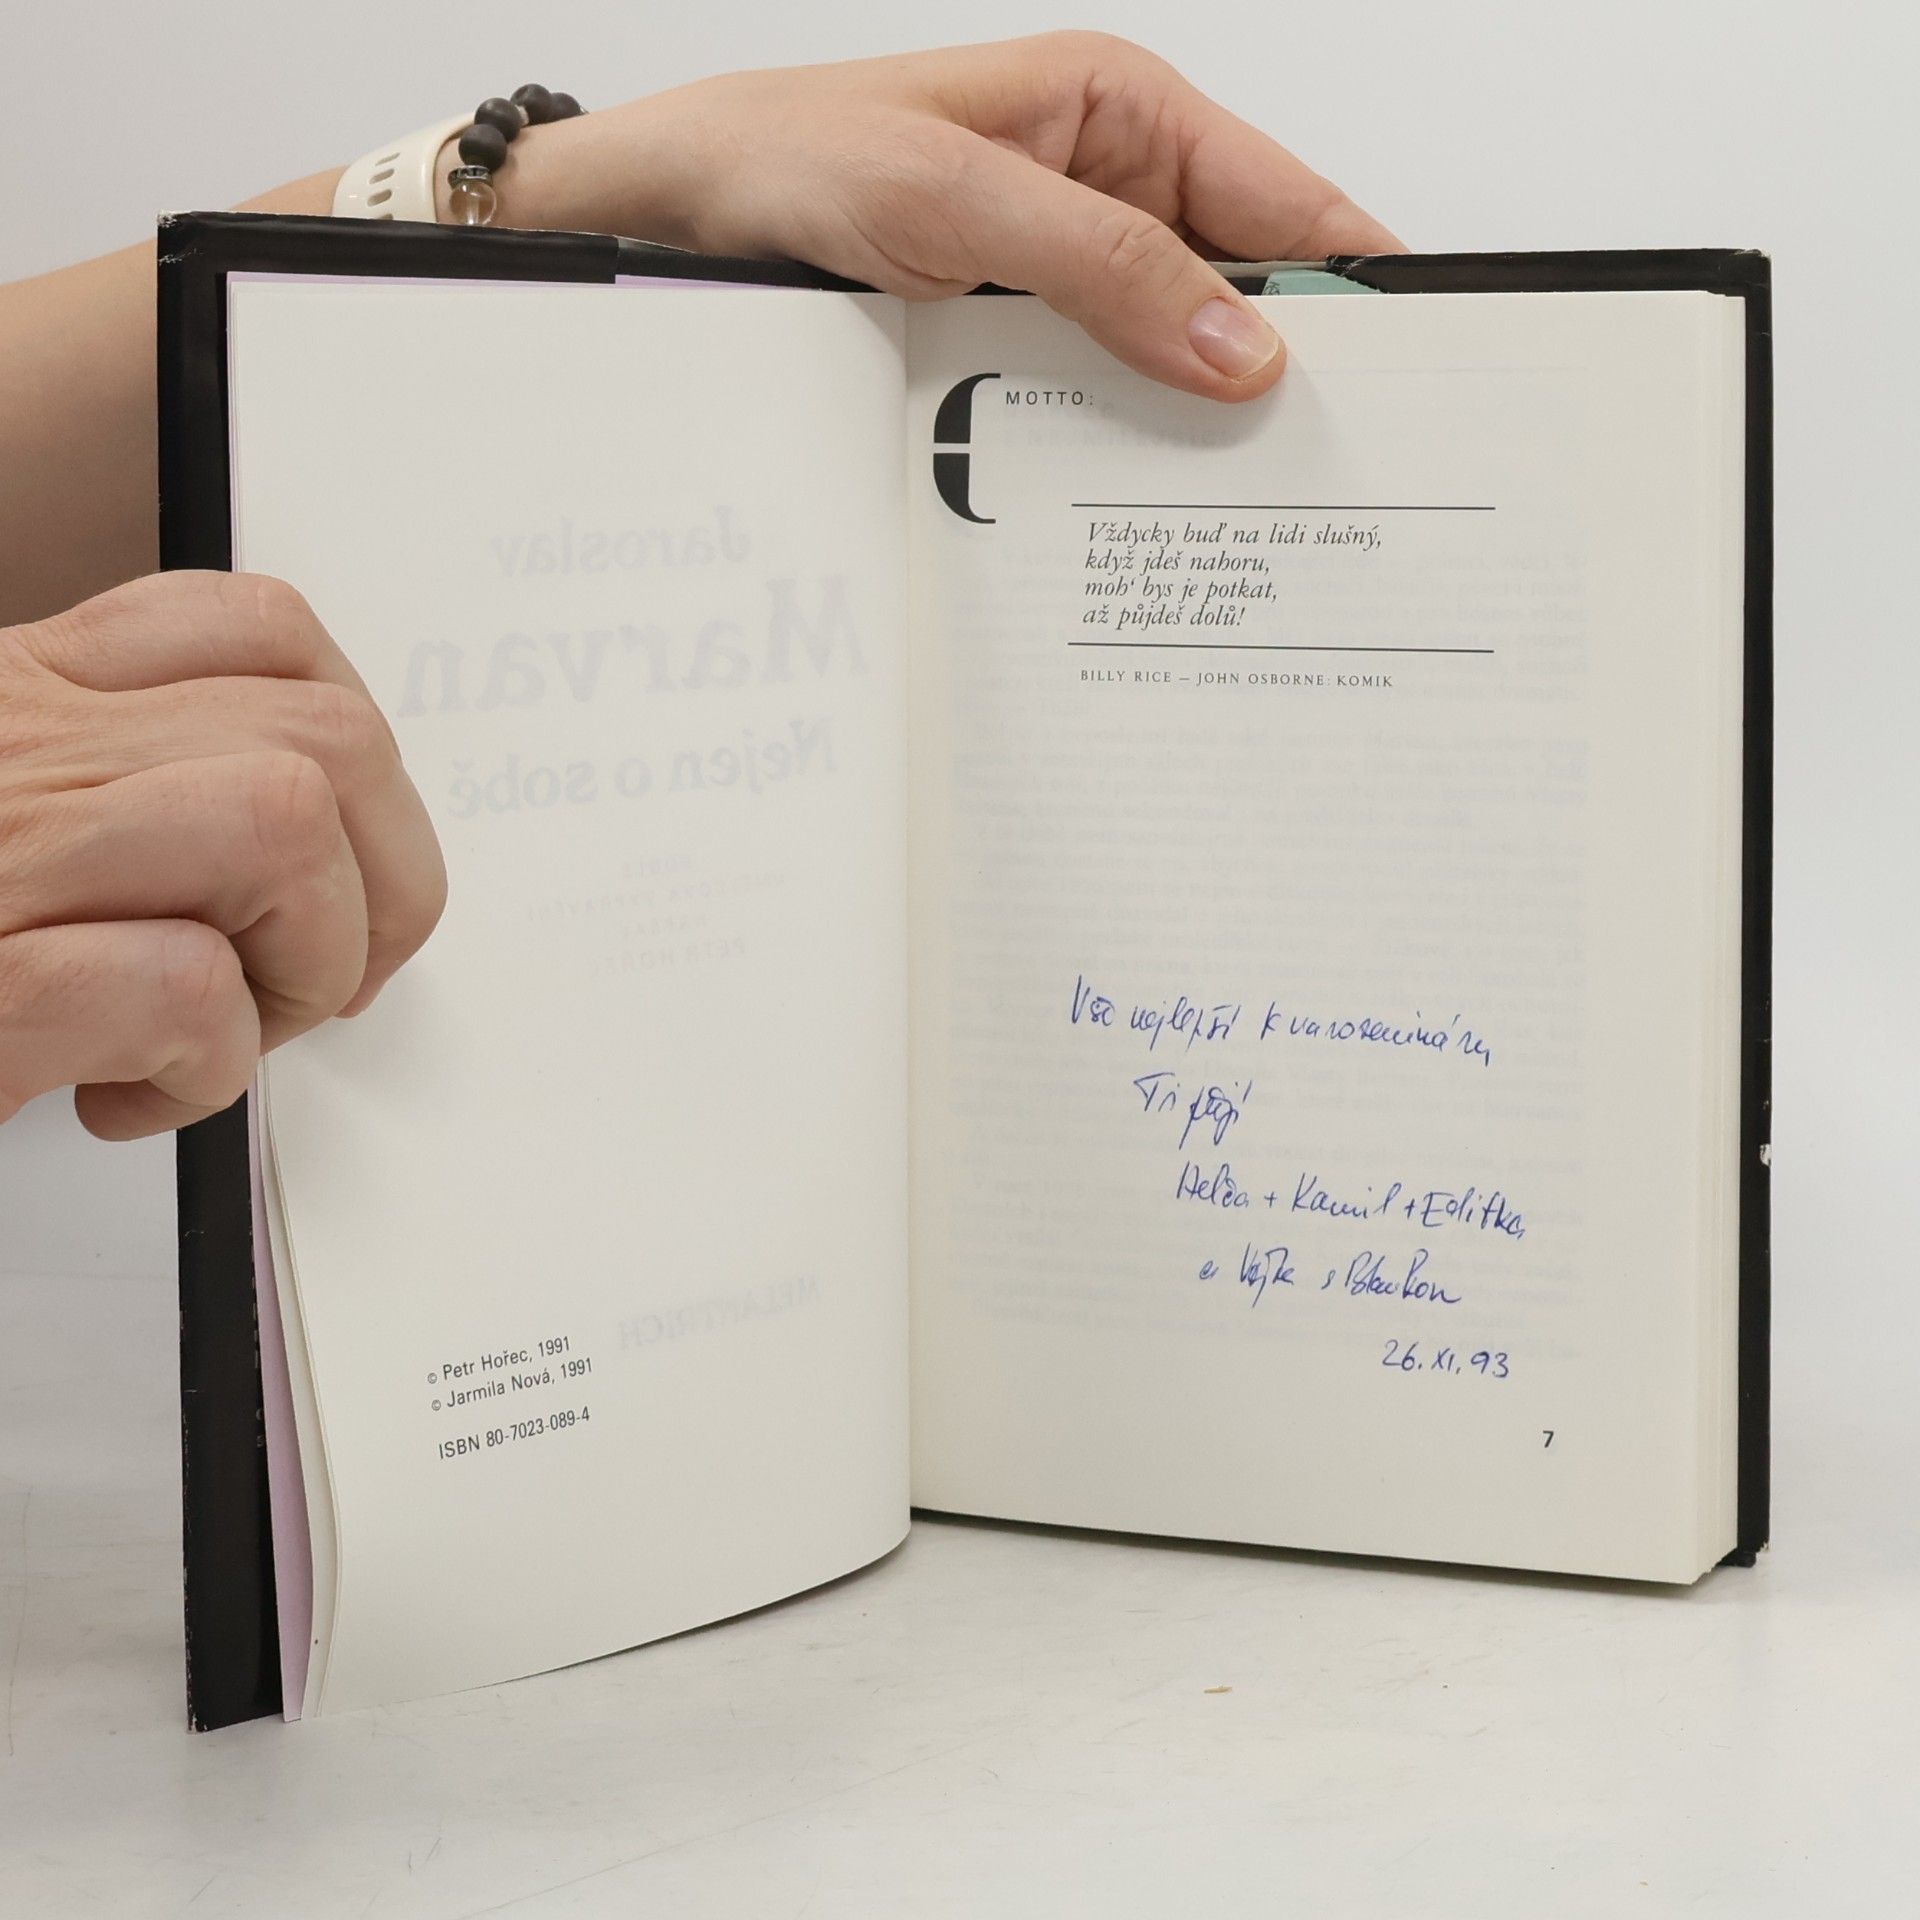 © Petr Hořec, 1991
© Jarmila Nová, 1991
ISBN 80-7023-089-4
MOTTO:
Vždycky buď na lidi slušný,
když jdeš nahoru,
moh‘ bys je potkat,
až půjdeš dolů!
BILLY RICE — JOHN OSBORNE: KOMIK
Vše nejlepší k narozeninám
Ti přejí
Helča + Kamil + Editka
a s
26. XI. 93
7
Jaroslav
Marvan
Nejen o sobě
PETR HOŘEC
MELANTRICH